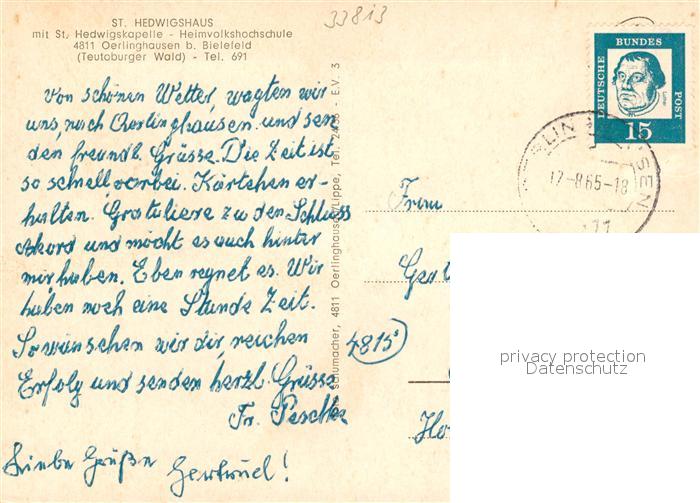 33813
ST. HEDWIGSHAUS
mit St. Hedwigskapelle - Heimvolkshochschule
4811 Oerlinghausen b. Bielefeld
(Teutoburger Wald) - Tel. 691
Von schönen Wetter, wagten wir
uns, nach Oerlinghausen und sen
den freundl. Grüsse. Die Zeit ist
so schnell vorbei. Kärtchen er-
halten. Gratuliere zu den Schluss
Akord und möcht es auch hinter
mir haben. Eben regnet es. Wir
haben noch eine Stunde Zeit.
So wünschen wir dir, reichen
Erfolg und senden herzl. Grüsse
Fr. Peschke
Liebe Grüße Gertrud!
Schumacher, 4811 Oerlinghausen/Lippe, Tel. - E.V. 3
DEUTSCHE BUNDES POST
15
17-8.65-18
Frau
4815
privacy protection
Datenschutz